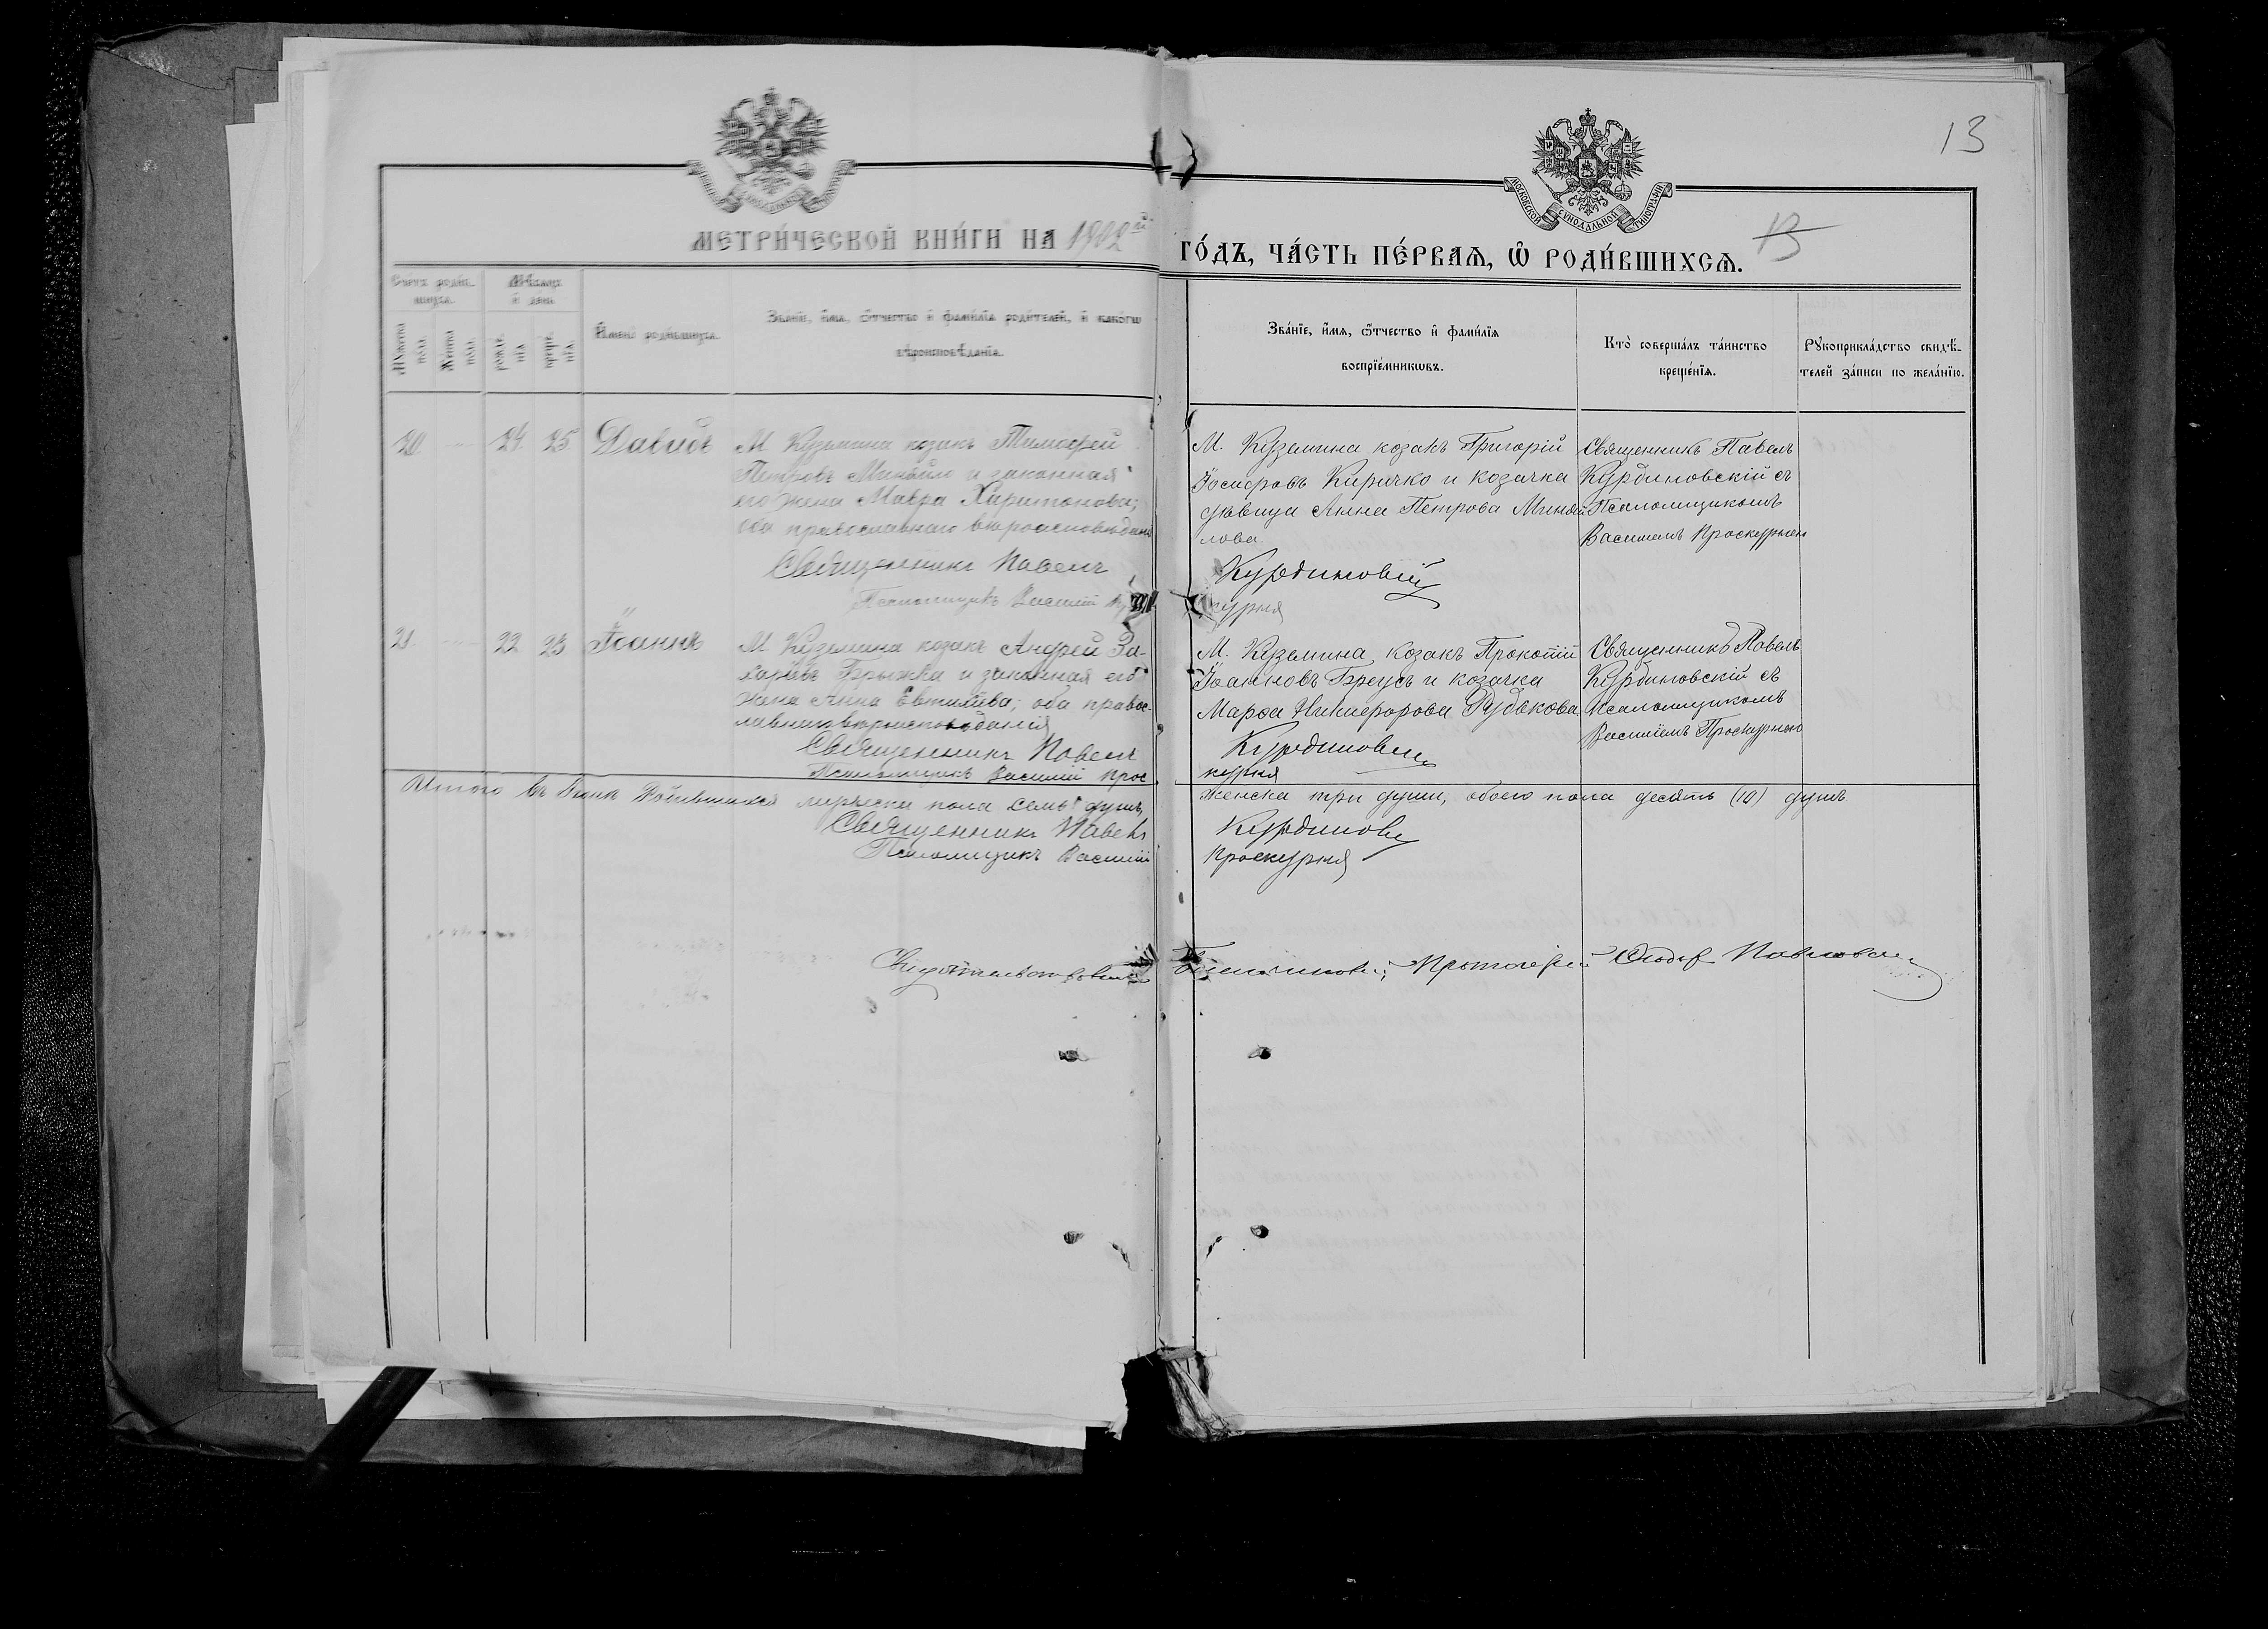 13
МОСКОВСКОЙ СѴНОДАЛЬНОЙ ТИПОГРАФІИ
МЕТРИ́ЧЕСКОЙ КНИ́ГИ НА 1902й
ГО́ДЪ, ЧА́СТЬ ПЕ́РВАѦ, Ѡ҆ РОДИ́ВШИХСѦ.
13
Сче́тъ роди́в-
шихсѧ.
Мѣ́сѧцъ
и҆ де́нь
Мꙋ́жеска
пола.
Же́нска
пола.
рожде́-
нїѧ
креще́-
нїѧ.
И҆мена̀ роди́вшихсѧ.
Зва́нїе, и҆́мѧ, ѻ҆́тчество и҆ фами́лїѧ роди́телей, и҆ како́гѡ
вѣроисповѣ́данїѧ.
Зва́нїе, и҆́мѧ, ѻ҆́тчество и҆ фами́лїѧ
воспрїе́мникѡвъ.
Кто̀ соверша́лъ та́инство
креще́нїѧ.
Рꙋкоприкла́дство свидѣ́-
телей за́писи по жела́нїю.
20 24 25 Давидъ
М. Куземина козакъ Тимоѳей
Петровъ Минайло и законная
его жена Мавра Харитонова;
оба православнаго вѣроисповѣдан
Священникъ Павелъ
Псаломщикъ Василій
М. Куземина козакъ Григорій
Іосифовъ Киричко и козачка
дѣвица Анна Петрова Минай
лова.
Курдиновскій
курня
Священникъ Павелъ
Курдиновскій съ
Псаломщикомъ
Василіемъ Проскурнею
21. 22 23 Іоаннъ
М. Куземина козакъ Андрей За-
харіевъ Брыжка и законная его
жена Анна Евтихіева; оба правос-
лавнаго вѣроисповѣданія
Священникъ Павелъ
Псаломщикъ Василій Прос
М. Куземина козакъ Прокопій
Іоанновъ Бреусъ и козачка
Марѳа Никифорова Рудькова
Курдиновскій
курня
Священникъ Павелъ
Курдиновскій съ
псаломщикомъ
Василіемъ Проскурнею
Итого въ Іюнѣ Родившихся мужеска пола семь душъ,
женска три души, обоего пола десять (10) душъ.
Священникъ Павелъ
Курдиновскій
Псаломщикъ Василій
Проскурня
Свидѣтельствовалъ
Протоіерей